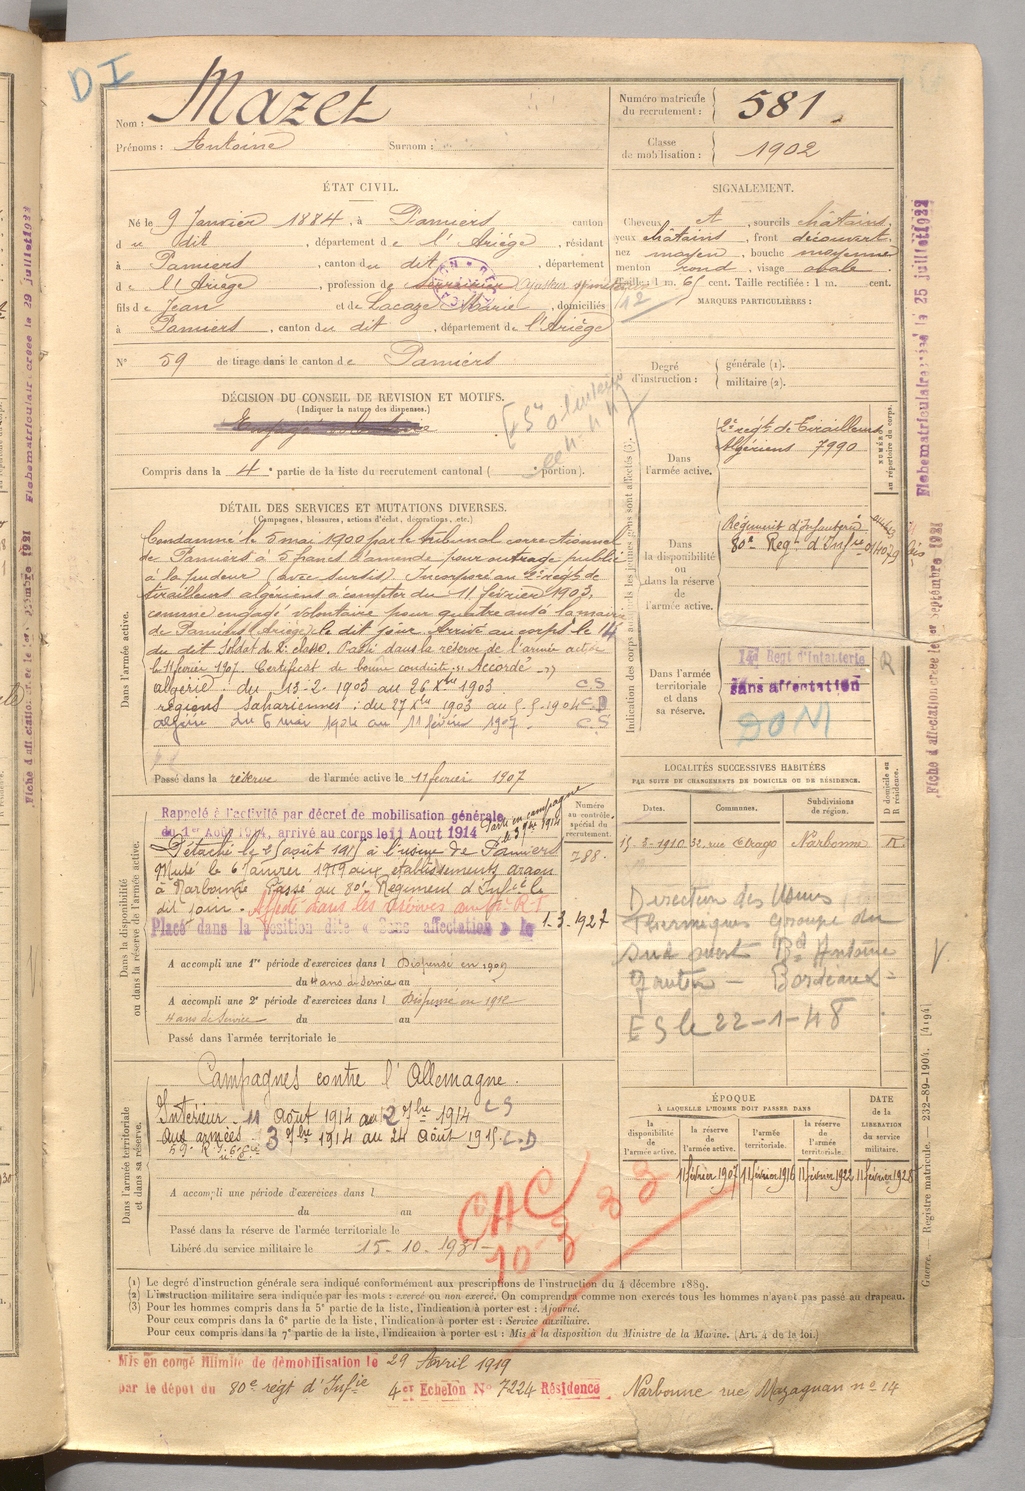 D I
Nom : Mazet
Prénoms : Antoine Surnom :
Numéro matricule du recrutement : 581
Classe de mobilisation : 1902
ÉTAT CIVIL.
Né le 9 Janvier 1884, à Pamiers canton
du dit, département de l'Ariège, résidant
à Pamiers, canton du dit, département
de l'Ariège, profession de
fils de Jean et de Lacaze Marie, domiciliés
à Pamiers, canton du dit, département de l'Ariège
N° 59 de tirage dans le canton de Pamiers
SIGNALEMENT.
Cheveux , sourcils châtains,
yeux châtains, front découvert,
nez moyen, bouche moyenne
menton rond, visage ovale
Taille : 1 m. 65 cent. Taille rectifiée : 1 m. cent.
12
MARQUES PARTICULIÈRES :
Degré d'instruction : générale (1).
militaire (2).
DÉCISION DU CONSEIL DE REVISION ET MOTIFS.
(Indiquer la nature des dispenses.)
Compris dans la 4e partie de la liste du recrutement cantonal ( portion).
DÉTAIL DES SERVICES ET MUTATIONS DIVERSES.
(Campagnes, blessures, actions d'éclat, décorations, etc.)
Dans l'armée active.
Condamné le 5 mai 1900 par le tribunal correctionnel
de Pamiers à 5 francs d'amende pour outrage public
à la pudeur (avec sursis). Incorporé au 2e régt de
tirailleurs algériens à compter du 11 février 1903,
comme engagé volontaire pour quatre ans à la mairie
de Pamiers (Ariège) le dit jour. Arrivé au corps le 14
du dit. Soldat de 2e classe. Passé dans la réserve de l'armée active
le 11 février 1907. Certificat de bonne conduite "Accordé"
algérie : du 13-2-1903 au 26 Xbre 1903 C.S
régions Sahariennes : du 27 Xbre 1903 au 5-5-1904 C.D
algérie du 6 mai 1904 au 11 février 1907 C.S
Passé dans la réserve de l'armée active le 11 février 1907
Indication des corps auxquels les jeunes gens sont affectés (3).
NUMÉRO au répertoire du corps.
Dans l'armée active.
2e régt de Tirailleurs
Algériens 7990
Dans la disponibilité ou dans la réserve de l'armée active.
Régiment d'Infanterie
80e Régt d'Infie
Dans l'armée territoriale et dans sa réserve.
Régt d'Infanterie R
sans affectation
DOM
Dans la disponibilité ou dans la réserve de l'armée active.
Rappelé à l'activité par décret de mobilisation générale
du 1er Août 1914, arrivé au corps le 11 Août 1914
Parti en campagne le 3 7bre 1914
Détaché le 25 août 1915 à l'usine de Pamiers
Muté le 6 janvier 1919 aux établissements
à Narbonne Passé au 80e Régiment d'Infie le
dit jour. Affecté dans les réserves au R.I
Placé dans la position dite « Sans affectation » le 1.3.1927
Numéro au contrôle spécial du recrutement.
788
A accompli une 1re période d'exercices dans l Dispensé en 1909
du 4 ans de Service au
A accompli une 2e période d'exercices dans l Dispensé en 1912
4 ans de Service du au
Passé dans l'armée territoriale le
LOCALITÉS SUCCESSIVES HABITÉES
PAR SUITE DE CHANGEMENTS DE DOMICILE OU DE RÉSIDENCE.
Dates. Communes. Subdivisions de région. D domicile ou R résidence.
15-3-1910 32, rue Arago Narbonne R
Direction des Usines
Thermiques Groupe du
Sud ouest Bd Antoine
Gautier - Bordeaux -
ES le 22-1-48
Dans l'armée territoriale et dans sa réserve.
Campagnes contre l'Allemagne.
Intérieur - 11 Août 1914 au 2 7bre 1914 C S
Aux armées - 3 7bre 1914 au 24 Août 1915 C.D
A accompli une période d'exercices dans l
du au
Passé dans la réserve de l'armée territoriale le
Libéré du service militaire le 15-10-1931-
CAC
10-3 33
ÉPOQUE
À LAQUELLE L'HOMME DOIT PASSER DANS
la disponibilité de l'armée active.
la réserve de l'armée active.
l'armée territoriale.
la réserve de l'armée territoriale.
DATE de la LIBÉRATION du service militaire.
11 février 1907 11 février 1916 11 février 1922 11 février 1928
(1) Le degré d'instruction générale sera indiqué conformément aux prescriptions de l'instruction du 4 décembre 1889.
(2) L'instruction militaire sera indiquée par les mots : exercé ou non exercé. On comprendra comme non exercés tous les hommes n'ayant pas passé au drapeau.
(3) Pour les hommes compris dans la 5e partie de la liste, l'indication à porter est : Ajourné.
Pour ceux compris dans la 6e partie de la liste, l'indication à porter est : Service auxiliaire.
Pour ceux compris dans la 7e partie de la liste, l'indication à porter est : Mis à la disposition du Ministre de la Marine. (Art. 4 de la loi.)
Mis en congé illimité de démobilisation le 29 Avril 1919
par le dépôt du 80e régt d'Infie 4e Echelon N° 7224 Résidence Narbonne rue Mazagran n° 14
Guerre. Registre matricule. — 232-89-1904. [4194]
Fiche matriculaire créée le 25 juillet 1932
Fiche d'affectation créée le 1er Septembre 1921